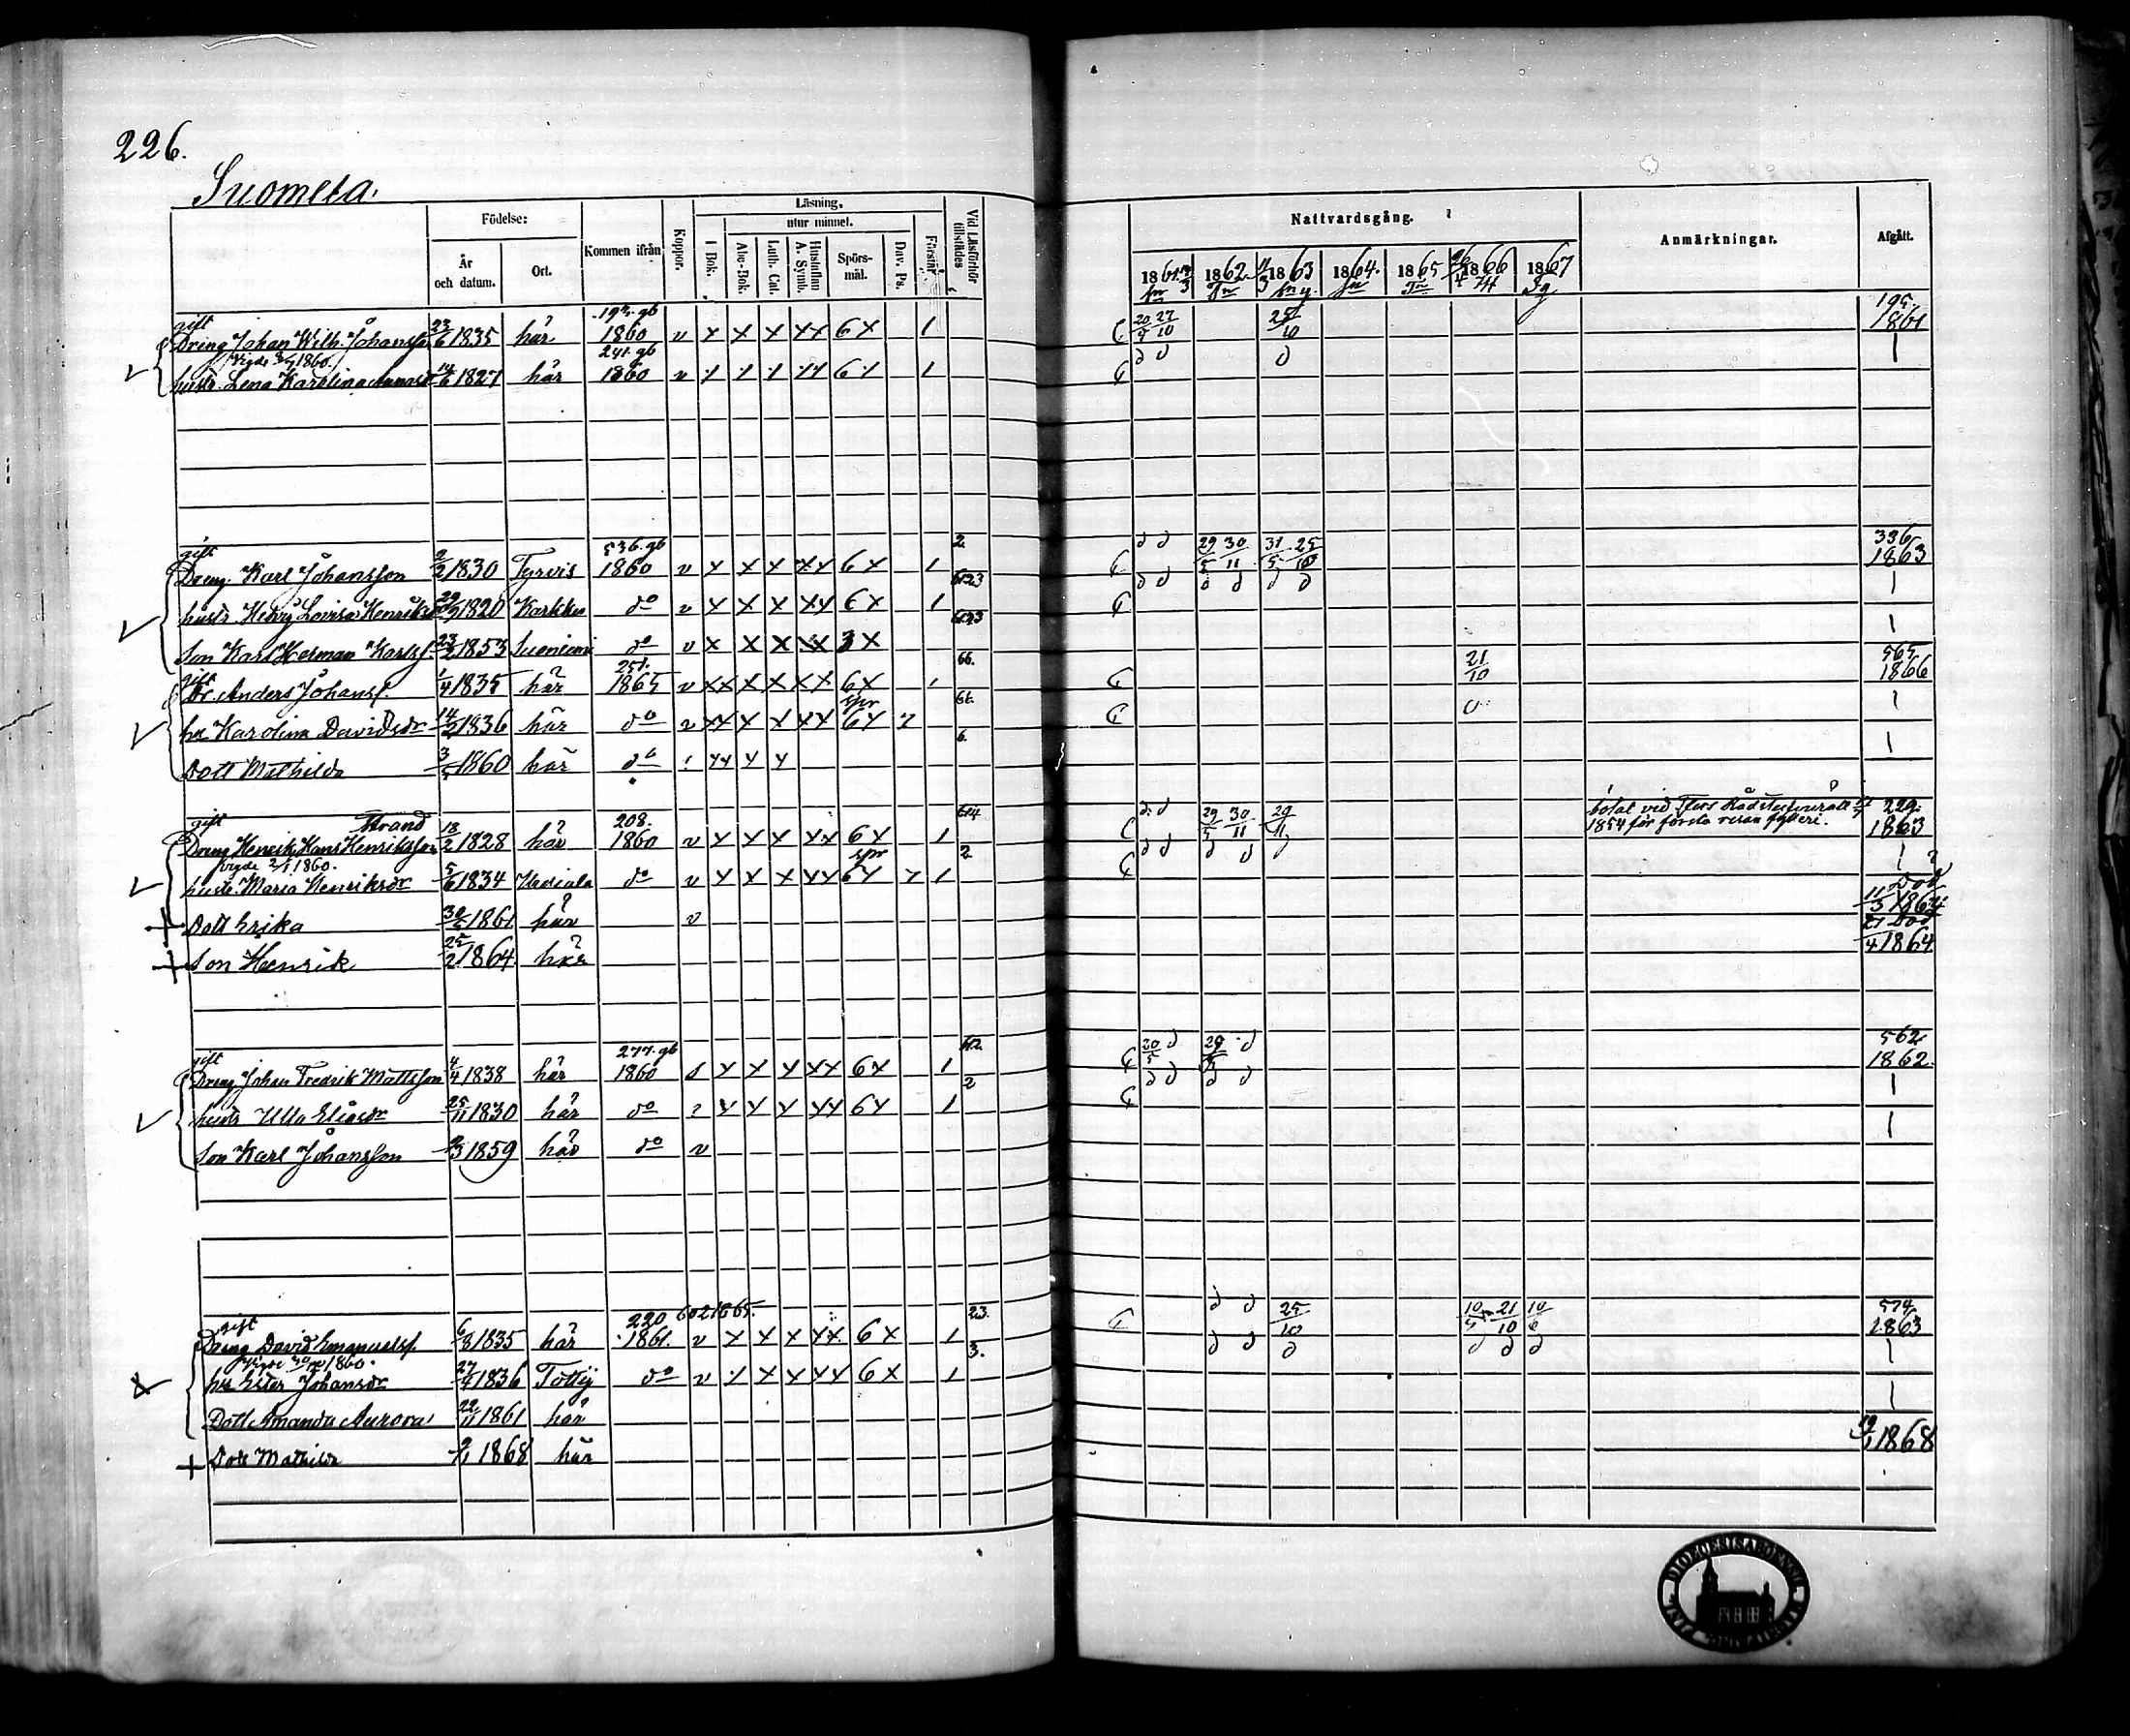 226.
Suomela.
Födelse:
År och datum.
Ort.
Kommen ifrån
Koppor.
Läsning.
I Bok.
utur minnet.
Abc-Bok.
Luth. Cat.
Hustaflan A. Symb.
Spörs-mål.
Dav. Ps.
Förstår
Vid Läsförhör tillstädes
Nattvardsgång.
1861 1862 1863 1864. 1865 1866 1867
Anmärkningar.
Afgått.
gift 193. gb 195.
Dreng Johan Wilh. Johansson 23/6 1835 här 1860 v x x x xx 6 x 1 20/5 27/10 25/10 1861
Vigde 1860. 241. gb d d d
hustr. Lena Karolina 14/6 1827 här 1860 v 6 1 1
gift 536. gb 2 d d 29/5 30/11 31/5 25/10 336
Dreng Karl Johansson 2/2 1830 Tyrvis 1860 v x x x xx 6 x 1 1863
d d d d d d
hustr. Hedvig Lovisa 1820 Karkku do v x x x xx 6 x 1 1
Son Karl Herman Karlss. 23/2 1853 Suoniemi do v x x x xx 3 x 1
gift 251. 66. 21/10 565.
Dr. Anders Johanss. 1/4 1835 här 1865 v xx x x xx 6x 1 1866
spr
hu Karolina Davidsdr 14/2 1836 här do v xx x x xx 6x 1
Dott Mathilda 1860 här do xx x x 1
gift Strand 208. 614 d d 29/5 30/11 29/11 bötat vid Tfors Rådstufvurätt 229.
Dreng Henrik Hans Henriksson 18/2 1828 här 1860 v x x x xx 6x 1 1854 för första resan fylleri. 1863
Vigde 1860. spr 2 d d d d d
hustr. Maria Henriksdr 5/6 1834 do v x x x xx 6x 1 1
Död
Dott Erika 1861 här v 11/3 1864
Död
Son Henrik 25/2 1864 här 21/4 1864
gift 277. gb 612. 20/5 d 29/5 d 562
Dreng Johan Fredrik Mattsson 4/4 1838 här 1860 x x x xx 6x 1 1862.
2 d d d d
hustr Ulla Eliasdr 25/11 1830 här do x x x xx 6x 1 1
Son Karl Johansson 1859 här do v 1
gift 220 602 1865. 23. d d 25/10 10/5 21/10 10/6 574
Dreng David Emanuelss. 6/8 1835 här 1861. v x x x xx 6 x 1 1863
Vigde 1860. 3. d d d d d d
hu Ester Johansdr 27/4 1836 Tottij do v x x x xx 6 x 1 1
Dott Amanda Aurora 22/11 1861 här 1
Dott Mathilda 1868 här 1868